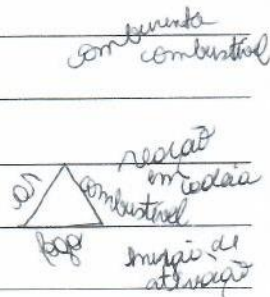 comburente
combustível
reação
em cadeia
ar
combustível
fogo
energia de
ativação